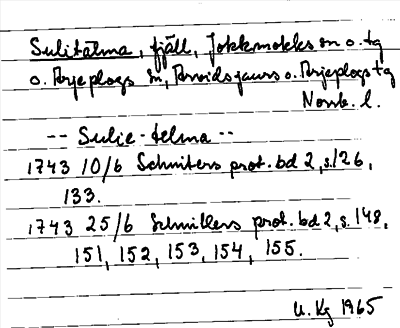 Sulitälma, fjäll, Jokkmokks sn o. tg
o. Arjeplogs sn, Arvidsjaurs o. Arjeplogs tg
Norrb. l.
-- Sulie-telma --
1743 10/6 Schnitlers prot. bd 2, s. 126,
133.
1743 25/6 Schnitlers prot. bd 2, s. 148,
151, 152, 153, 154, 155.
U. Kg 1965